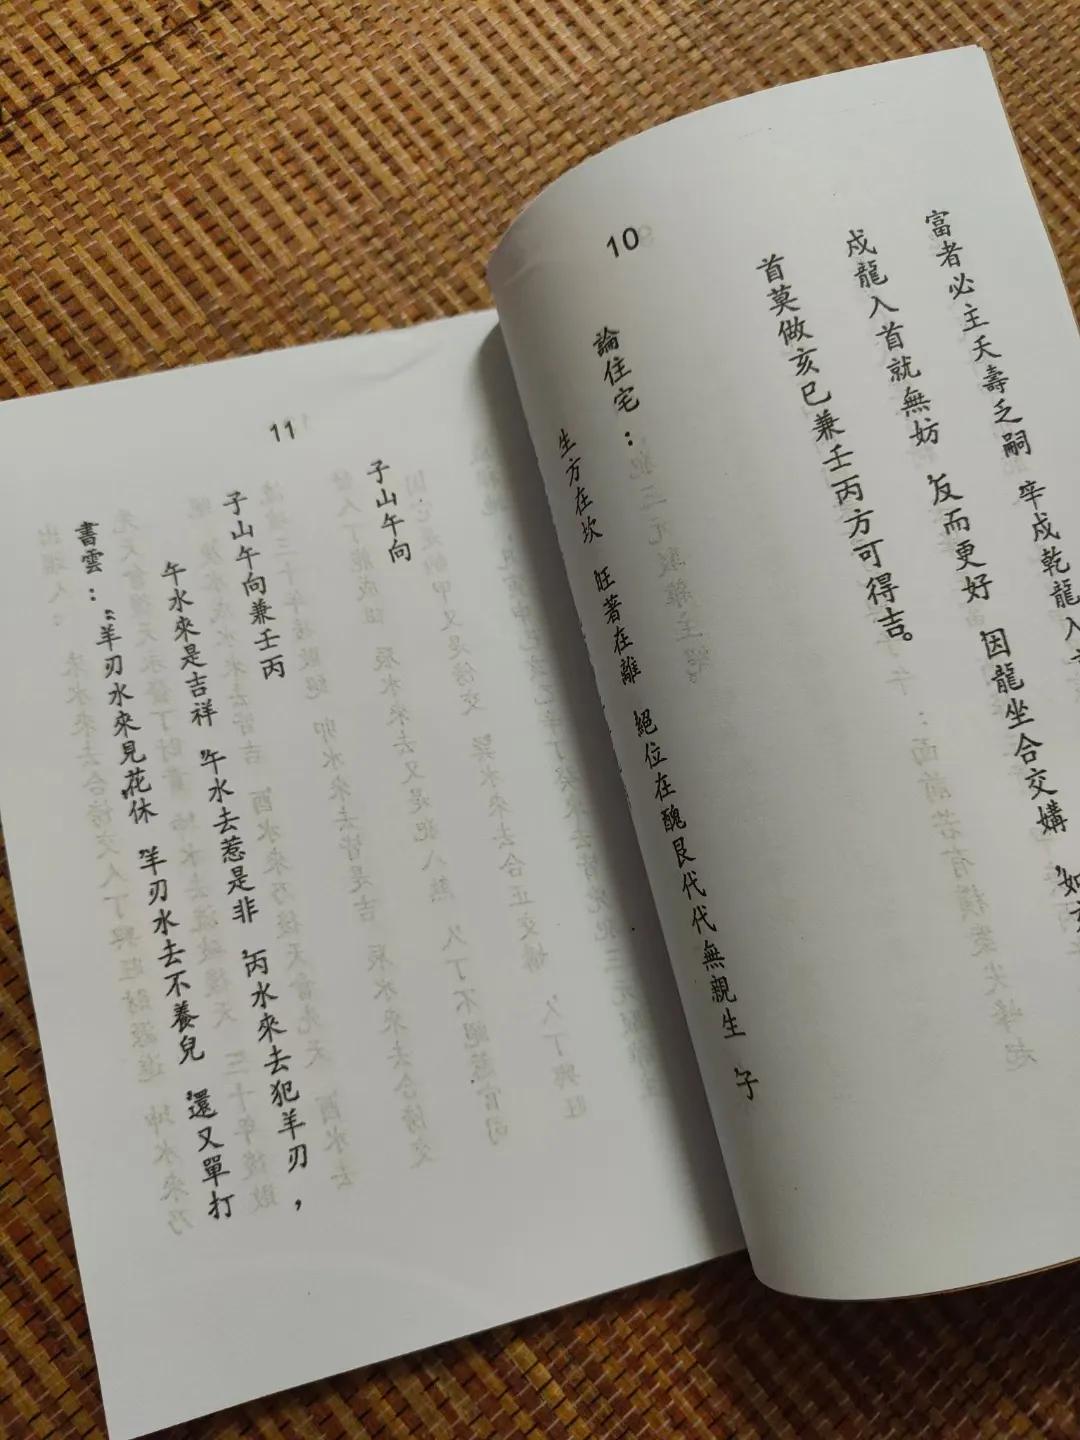 富者必主夭壽乏嗣 辛戌乾龍入
戍龍入首就無妨 反而更好 因龍坐合交媾 如
首莫做亥巳兼壬丙方可得吉。
10
論住宅：
生方在坎 旺著在離 絕位在醜艮代代無親生 子
11
子山午向
子山午向兼壬丙
午水來是吉祥 午水去惹是非 丙水來去犯羊刃，
書雲：“羊刃水來見花休 羊刃水去不養兒 還又單打